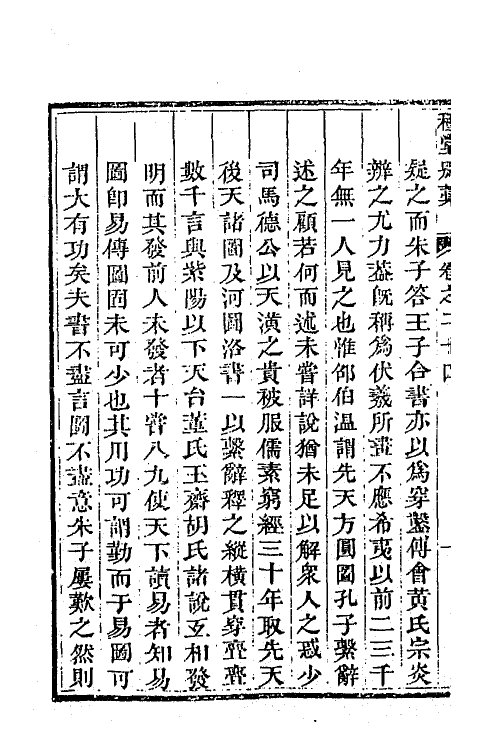 疑之而朱子答王子合書亦以爲穿鑿傅會黄氏宗炎
辨之尤力葢旣稱爲伏羲所畫不應希夷以前二三千
年無一人見之也惟邵伯温謂先天方圓圖孔子繫辭
述之顧若何而述未嘗詳說猶未足以解衆人之惑少
司馬德公以天潢之貴被服儒素窮經三十年取先天
後天諸圖及河圖洛書一以繫辭釋之縱橫貫穿亹亹
數千言與紫陽以下天台董氏玉齋胡氏諸說互相發
明而其發前人未發者十嘗八九使天下讀易者知易
圖卽易傳圖固未可少也其用功可謂勤而于易圖可
謂大有功矣夫書不盡言圖不盡意朱子屢歎之然則
卷之二十四